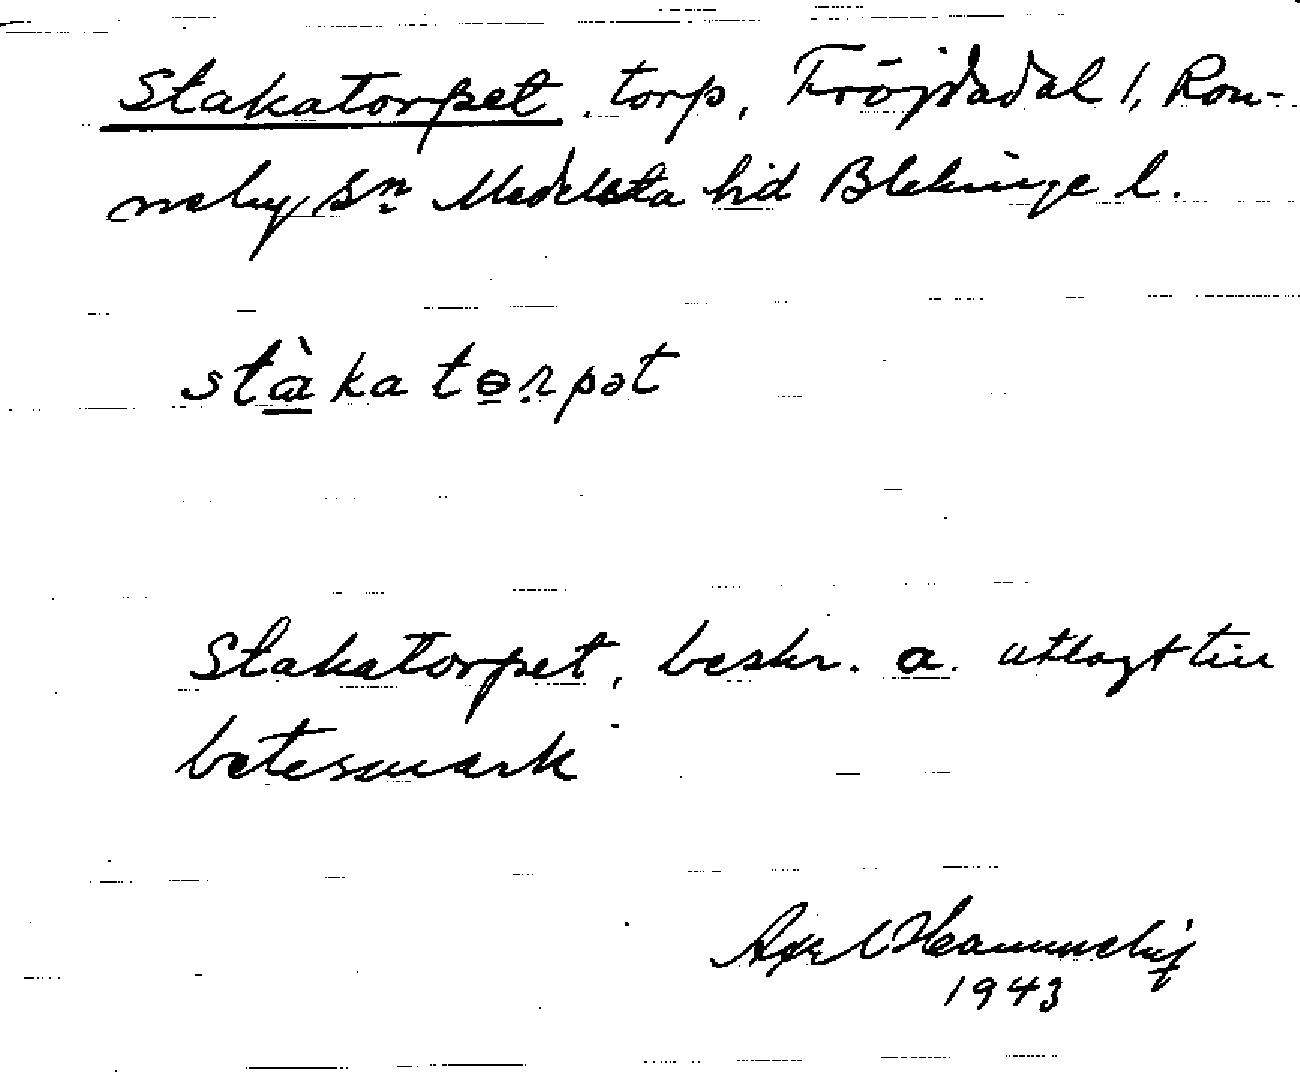 Stakatorpet, torp, Fröjdadal 1, Ron-
neby sn Medelsta hd Blekinge l.
stàka tɵrpət
Stakatorpet, beskr. a. utlagt till
betesmark
Axel
1943